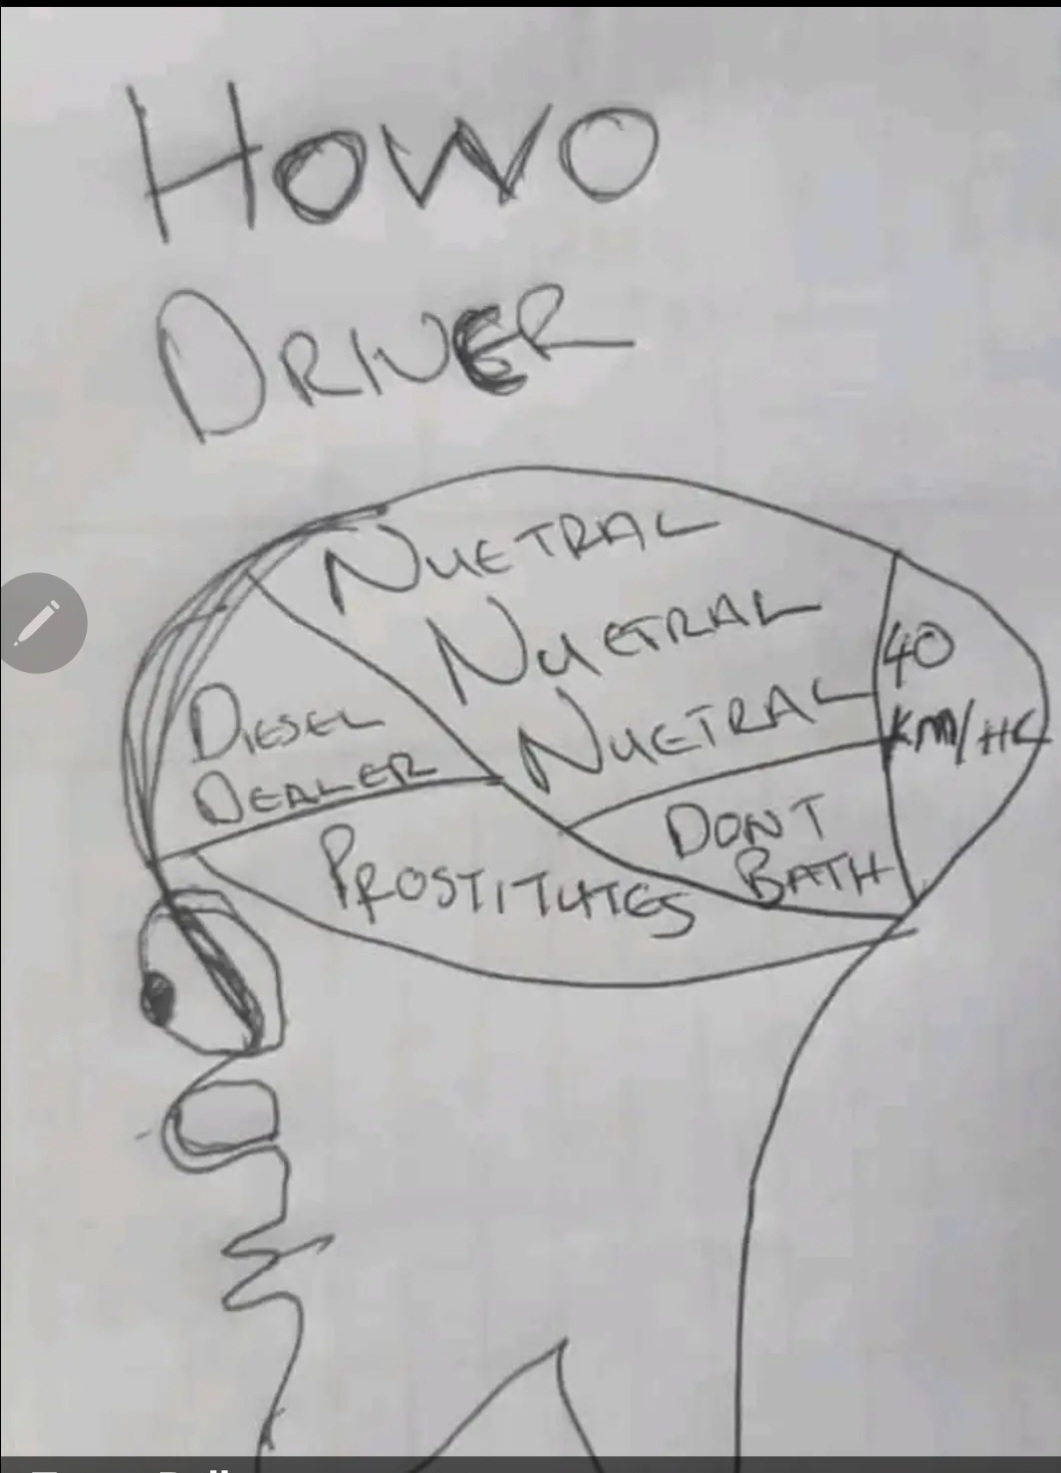 HOWO
DRIVER
NUETRAL
NUETRAL
NUETRAL
40
KM/HR
DIESEL
DEALER
DONT
BATH
PROSTITUTES